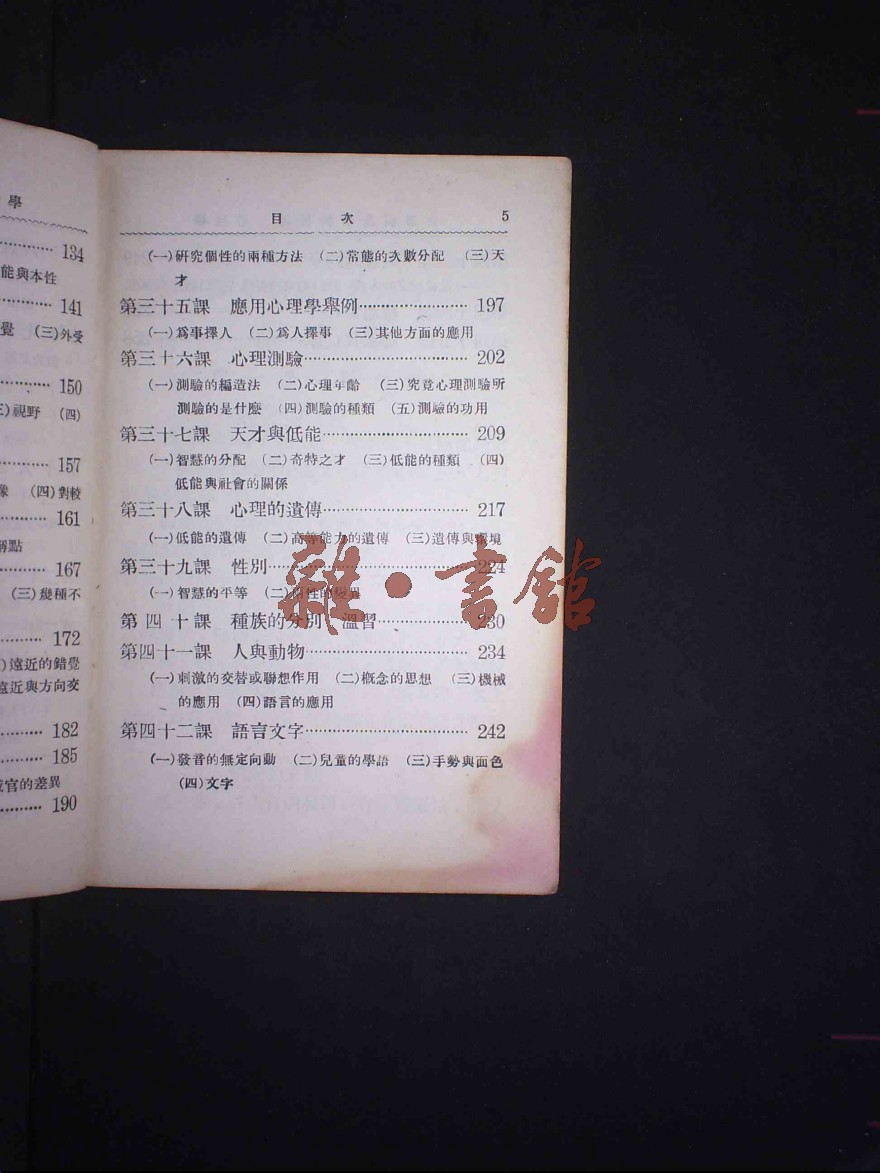 學
134
能與本性
141
覺 (三)外受
150
三)視野 (四)
157
像 (四)對較
161
167
(三)幾種不
172
)遠近的錯覺
遠近與方向交
182
185
官的差異
190
目 次 5
(一)研究個性的兩種方法 (二)常態的次數分配 (三)天
才
第三十五課 應用心理學舉例 197
(一)爲事擇人 (二)爲人擇事 (三)其他方面的應用
第三十六課 心理測驗 202
(一)測驗的編造法 (二)心理年齡 (三)究竟心理測驗所
測驗的是什麽 (四)測驗的種類 (五)測驗的功用
第三十七課 天才與低能 209
(一)智慧的分配 (二)奇特之才 (三)低能的種類 (四)
低能與社會的關係
第三十八課 心理的遺傳 217
(一)低能的遺傳 (二)高等能力的遺傳 (三)遺傳與環境
第三十九課 性別 224
(一)智慧的平等 (二)兩性的變異
第四十課 種族的分別 溫習 230
第四十一課 人與動物 234
(一)刺激的交替或聯想作用 (二)概念的思想 (三)機械
的應用 (四)語言的應用
第四十二課 語言文字 242
(一)發音的無定向動 (二)兒童的學語 (三)手勢與面色
(四)文字
雜·書館